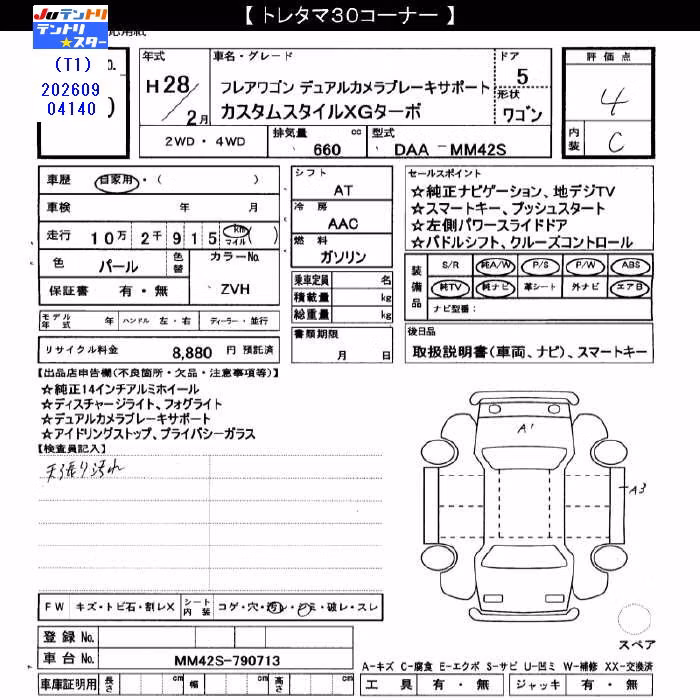 【 トレタマ30コーナー 】
JUテントリ
テントリ
★スター
(T1)
202609
04140
年式
H28
2月
車名・グレード
フレアワゴン デュアルカメラブレーキサポート
カスタムスタイルXGターボ
ドア
5
形状
ワゴン
評価点
4
内装
C
2WD・4WD
排気量
660
cc
型式
DAA－MM42S
車歴 自家用・( )
車検 年 月
走行 10万 2千 915 km マイル ( )
色 パール 色替 カラーNo.
保証書 有・無 ZVH
シフト
AT
冷房
AAC
燃料
ガソリン
乗車定員 名
積載量 kg
総重量 kg
書類期限
月 日
セールスポイント
☆純正ナビゲーション、地デジTV
☆スマートキー、プッシュスタート
☆左側パワースライドドア
☆パドルシフト、クルーズコントロール
装備品
S/R 純A/W P/S P/W ABS
純TV 純ナビ 革シート 外ナビ エアB
ナビ型番：
モデル年式 年 ハンドル 左・右 ディーラー・並行
リサイクル料金 8,880 円 預託済
後日品
取扱説明書(車両、ナビ)、スマートキー
【出品店申告欄(不良箇所・欠品・注意事項等)】
☆純正14インチアルミホイール
☆ディスチャージライト、フォグライト
☆デュアルカメラブレーキサポート
☆アイドリングストップ、プライバシーガラス
【検査員記入】
天張り汚れ
A1
A3
FW キズ・トビ石・割レX シート内装 コゲ・穴・汚レ・シミ・破レ・スレ
登録 No.
車台 No. MM42S-790713
車庫証明用 長さ cm 幅 cm 高さ cm
スペア
A-キズ C-腐食 E-エクボ S-サビ U-凹ミ W-補修 XX-交換済
工具 有・無 ジャッキ 有・無